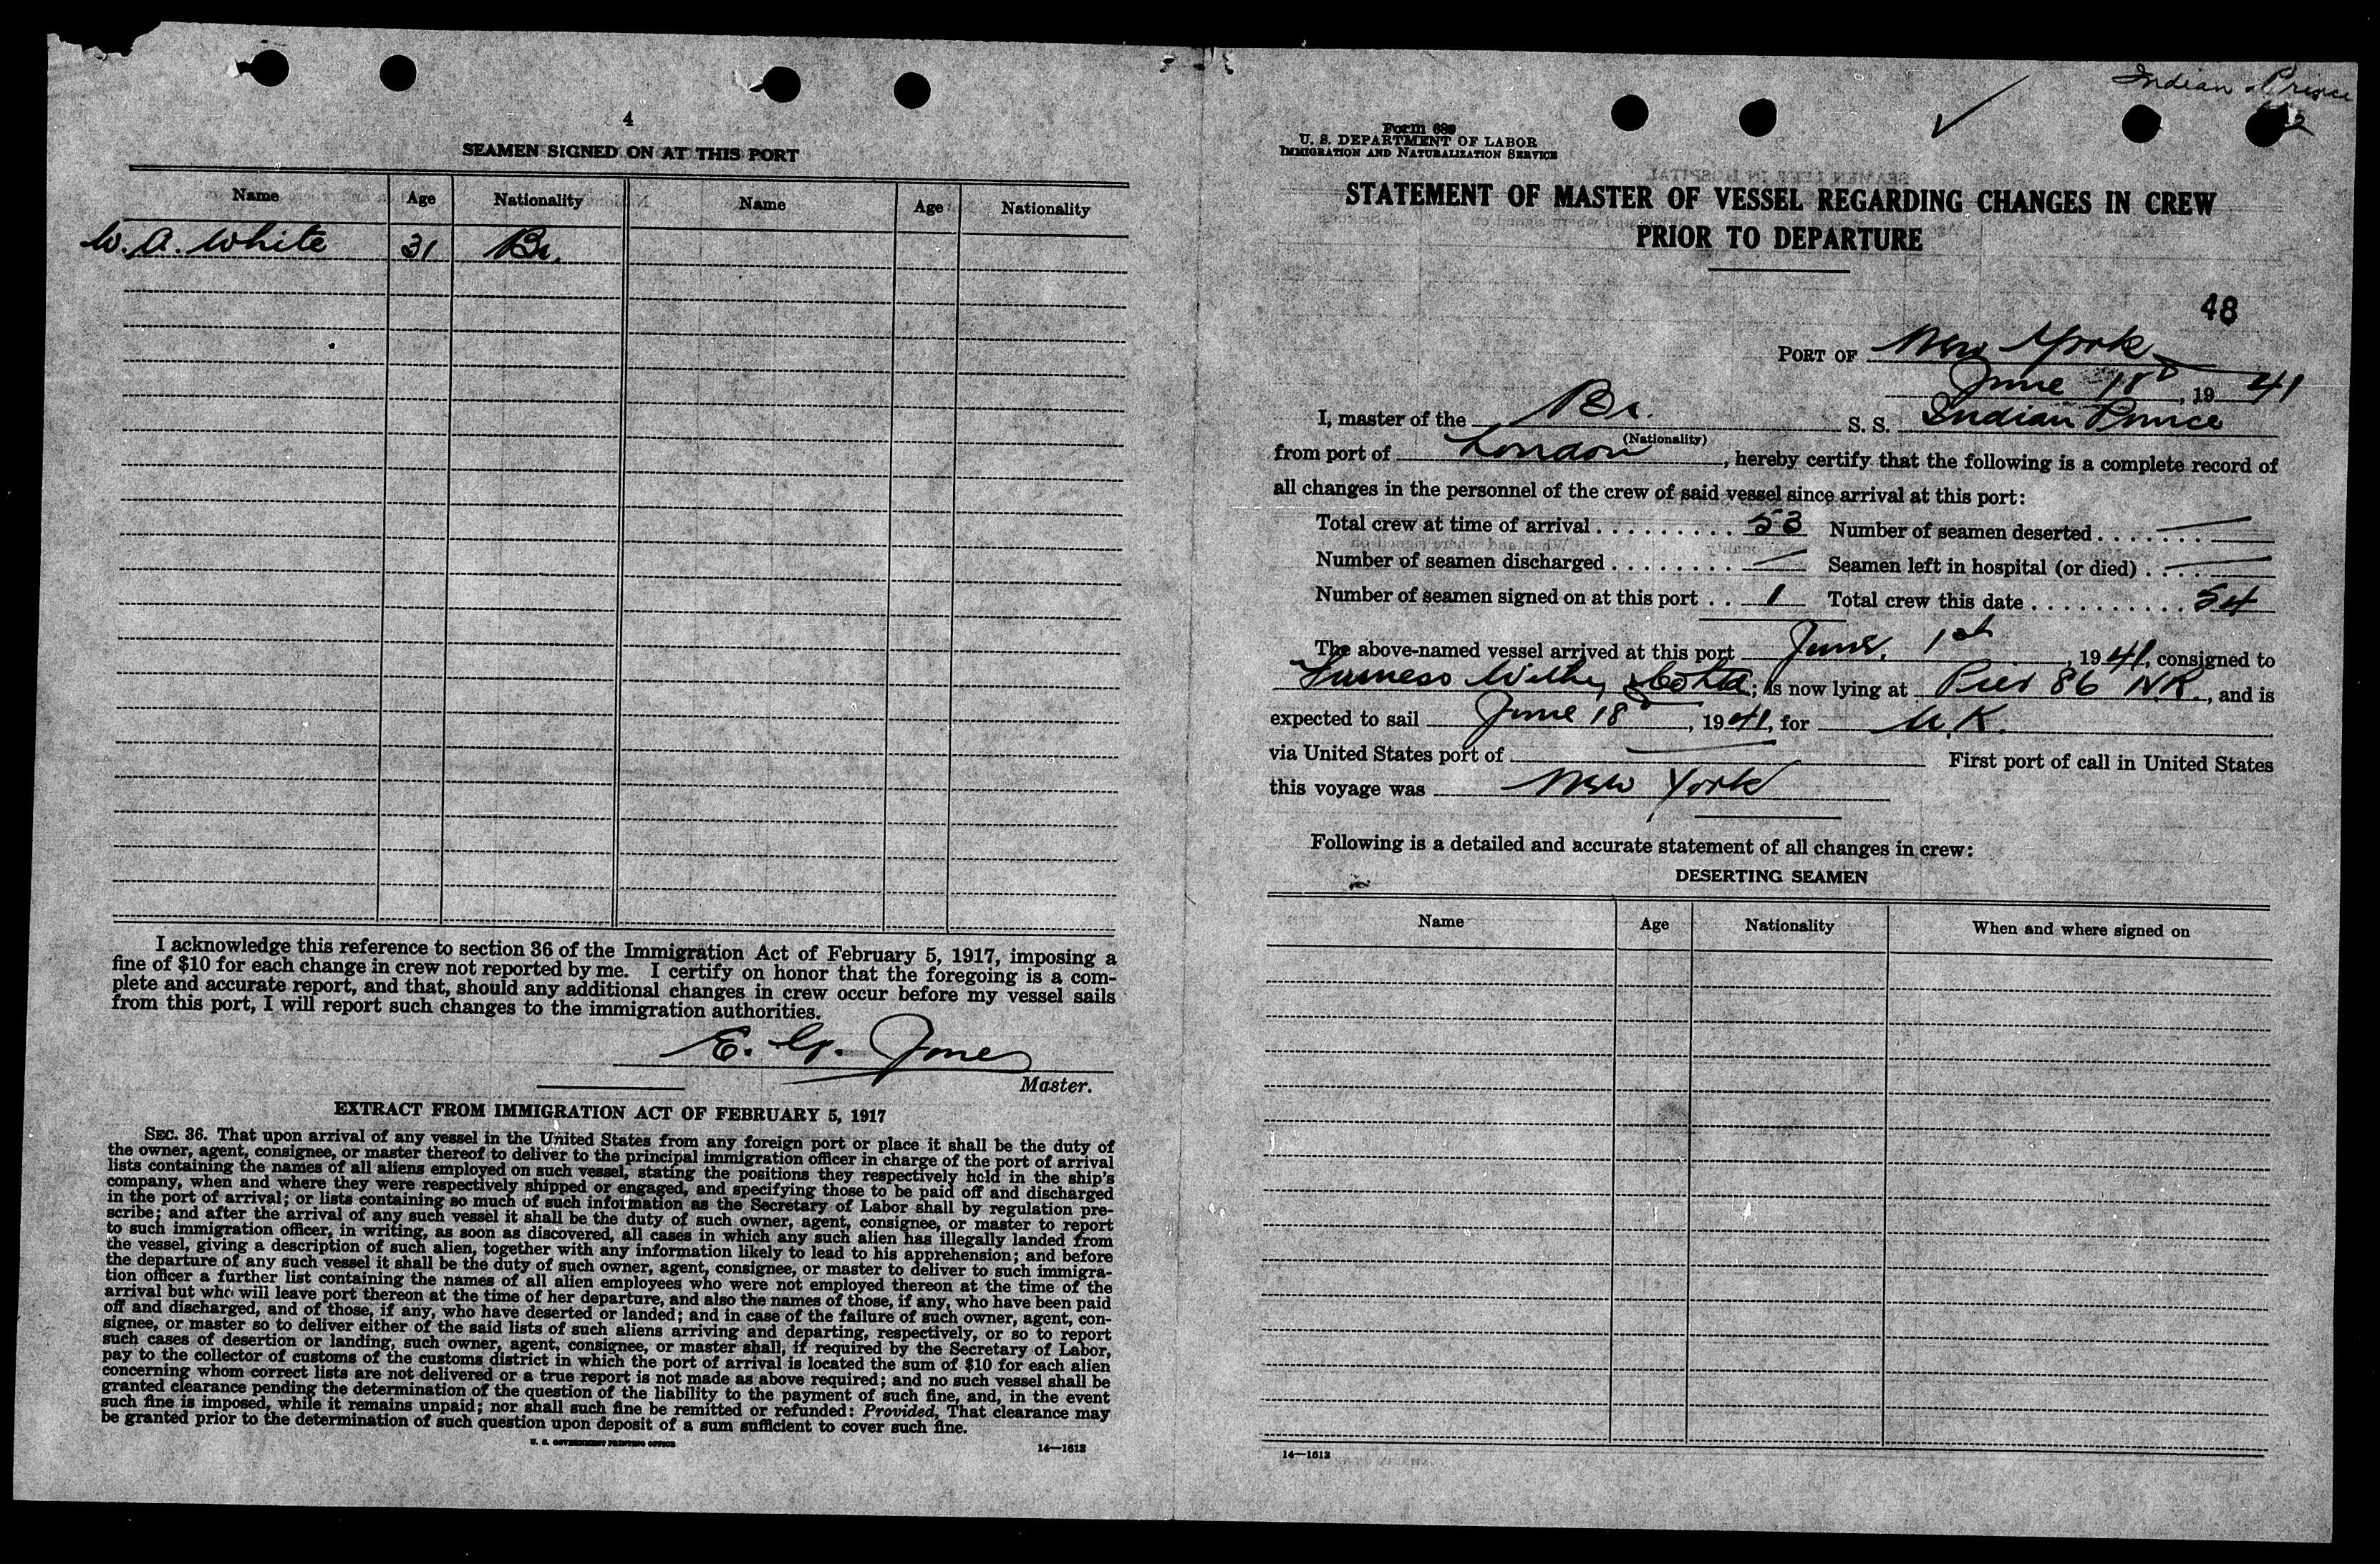 4
SEAMEN SIGNED ON AT THIS PORT
Name Age Nationality Name Age Nationality
W. A. White 31 Br.
I acknowledge this reference to section 36 of the Immigration Act of February 5, 1917, imposing a
fine of $10 for each change in crew not reported by me. I certify on honor that the foregoing is a com-
plete and accurate report, and that, should any additional changes in crew occur before my vessel sails
from this port, I will report such changes to the immigration authorities.
E. G. Jones
Master.
EXTRACT FROM IMMIGRATION ACT OF FEBRUARY 5, 1917
SEC. 36. That upon arrival of any vessel in the United States from any foreign port or place it shall be the duty of
the owner, agent, consignee, or master thereof to deliver to the principal immigration officer in charge of the port of arrival
lists containing the names of all aliens employed on such vessel, stating the positions they respectively hold in the ship's
company, when and where they were respectively shipped or engaged, and specifying those to be paid off and discharged
in the port of arrival; or lists containing so much of such information as the Secretary of Labor shall by regulation pre-
scribe; and after the arrival of any such vessel it shall be the duty of such owner, agent, consignee, or master to report
to such immigration officer, in writing, as soon as discovered, all cases in which any such alien has illegally landed from
the vessel, giving a description of such alien, together with any information likely to lead to his apprehension; and before
the departure of any such vessel it shall be the duty of such owner, agent, consignee, or master to deliver to such immigra-
tion officer a further list containing the names of all alien employees who were not employed thereon at the time of the
arrival but who will leave port thereon at the time of her departure, and also the names of those, if any, who have been paid
off and discharged, and of those, if any, who have deserted or landed; and in case of the failure of such owner, agent, con-
signee, or master so to deliver either of the said lists of such aliens arriving and departing, respectively, or so to report
such cases of desertion or landing, such owner, agent, consignee, or master shall, if required by the Secretary of Labor,
pay to the collector of customs of the customs district in which the port of arrival is located the sum of $10 for each alien
concerning whom correct lists are not delivered or a true report is not made as above required; and no such vessel shall be
granted clearance pending the determination of the question of the liability to the payment of such fine, and, in the event
such fine is imposed, while it remains unpaid; nor shall such fine be remitted or refunded: Provided, That clearance may
be granted prior to the determination of such question upon deposit of a sum sufficient to cover such fine.
U. S. GOVERNMENT PRINTING OFFICE 14—1613
Indian Prince
Form 689
U. S. DEPARTMENT OF LABOR
IMMIGRATION AND NATURALIZATION SERVICE
STATEMENT OF MASTER OF VESSEL REGARDING CHANGES IN CREW
PRIOR TO DEPARTURE
48
PORT OF New York
June 18th, 1941
I, master of the Br. S. S. Indian Prince
(Nationality)
from port of London, hereby certify that the following is a complete record of
all changes in the personnel of the crew of said vessel since arrival at this port:
Total crew at time of arrival 53 Number of seamen deserted —
Number of seamen discharged — Seamen left in hospital (or died) —
Number of seamen signed on at this port 1 Total crew this date 54
The above-named vessel arrived at this port June 1st, 1941, consigned to
Furness Withy & Co Ltd; is now lying at Pier 86 NR., and is
expected to sail June 18th, 1941, for U.K.
via United States port of — First port of call in United States
this voyage was New York
Following is a detailed and accurate statement of all changes in crew:
DESERTING SEAMEN
Name Age Nationality When and where signed on
14—1613